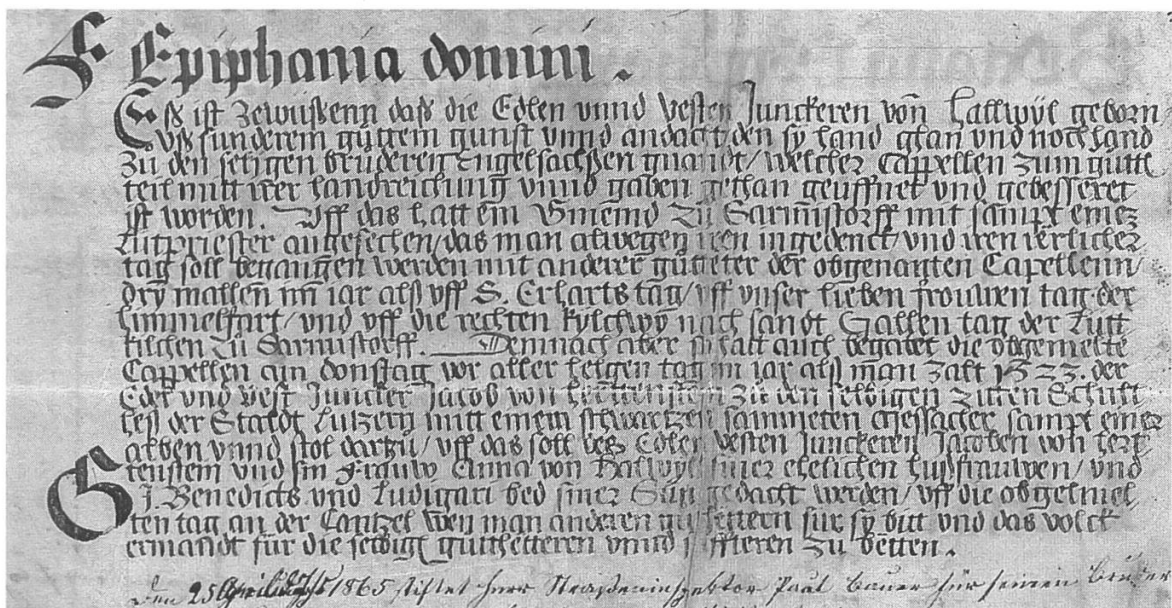 F Epiphania domini .
Eß ist zewüßenn daß die Edlen vnnd vesten Junckeren von Hallwÿl geborn/
vß sunderem gůtem gunst vnnd andacht/ den sÿ hand ghan vnd noch hand
Zu den seligen brüderen Engelsachßen gnandt/ welcher Cappellen zum gůtte
teil mitt irer handreichung vnnd gaben gethan geüffnet vnd gebesseret
ist worden. Vff das hatt ein Gmeind zů Sarmistorff mit sampt einez
Lütpriester angesechen/ das man alwegen iren ingedenck/ vnd iren ierlichez
tag soll begangen werden mit anderer gůtteter der obgenanten Capellenn/
drÿ mallen im iar alß vff S. Erharts tag/ vff vnser lieben frouwen tag der
himmelfart/ vnd vff die rechten kÿlchwÿ nach sandt Gallen tag der Lütt
kilchen zů Sarmistorff. Demnach aber so hatt auch begabet die obgemelte
Cappellen am donstag vor aller helgen tag im iar alß man zalt 1523. der
Edel vnd vest Juncker Jacob von zů den selbigen zitten Schult
heß der Stadt Lutzern mitt einem schwartzen sammeten messacher sampt einer
alben vnnd stol dartzů/ vff das soll dez Edlen vesten Junckeren Jacoben von hert/
tenstein vnd sin frauw Anna von Halwÿl siner ehelichen hußfrauwen/ vnd
S. J. Benedicts vnd Ludigari bed siner Sün gedacht werden/ vff die obgemel
ten tag an der Cantzel wen man anderen gůthettern für sÿ bitt vnd das volck
ermandt für die selbige gůtthetteren vnnd stiffteren zů betten.
Den 25 April 1865 stiftet Herr Straßeninspektor Paul Bauer für seinen Bruder